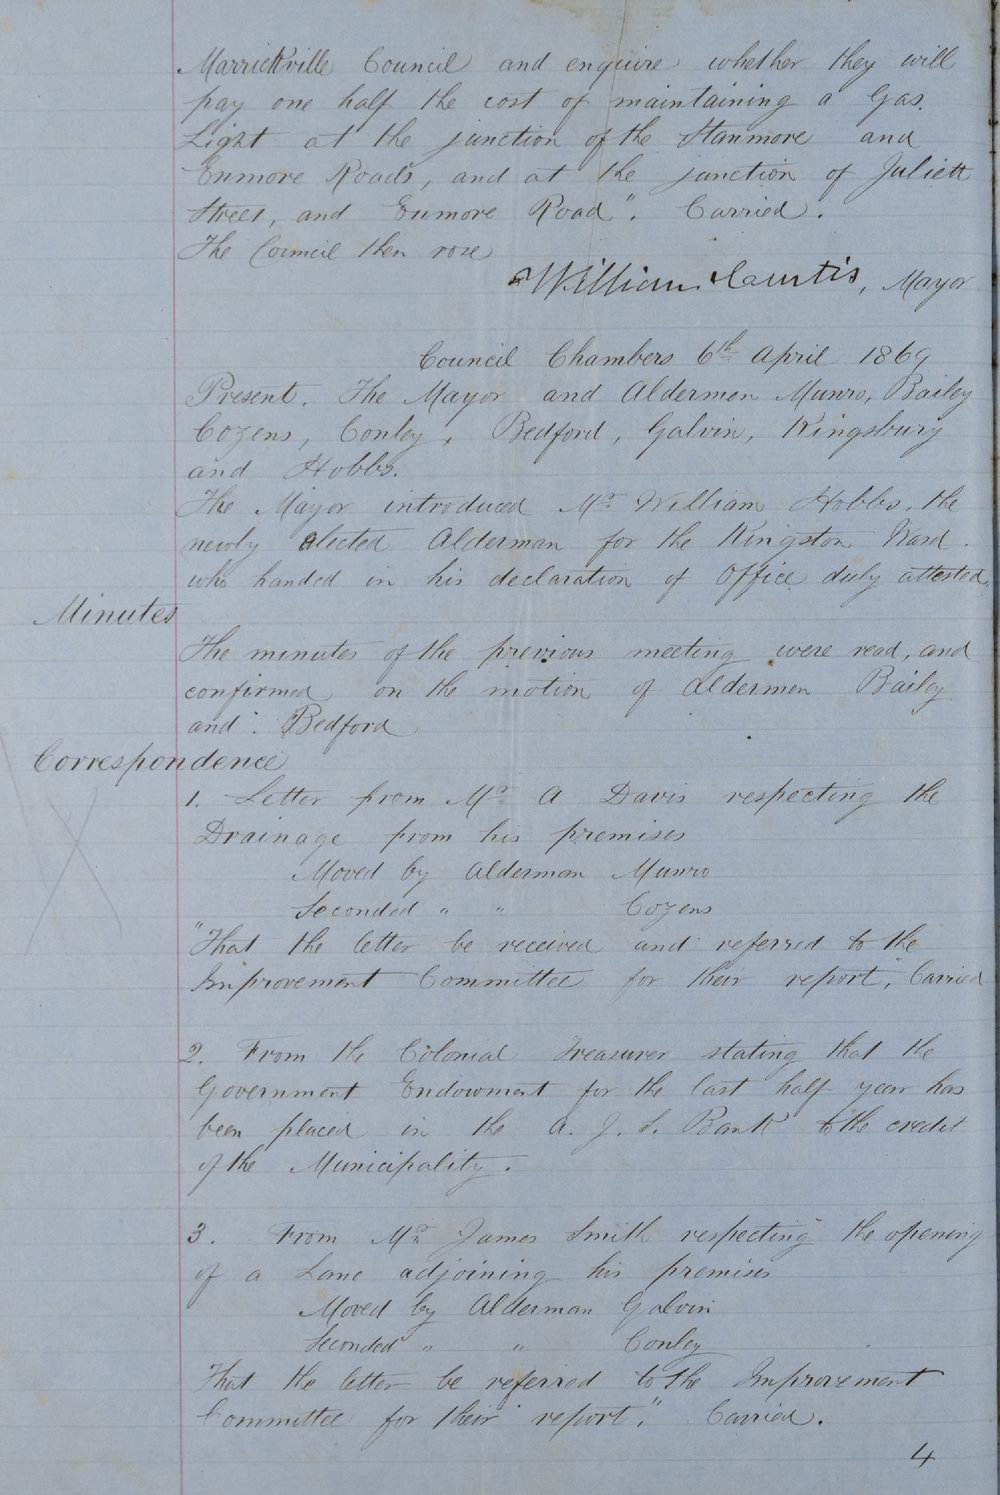 Marrickville Council and enquire whether they will
pay one half the cost of maintaining a Gas.
Light at the junction of the Stanmore and
Enmore Roads, and at the junction of Juliett
Street, and Enmore Road". Carried.
The Council then rose
William Curtis, Mayor
Council Chambers 6th April 1869
Present. The Mayor and Aldermen Munro, Bailey
Cozens, Conley, Bedford, Galvin, Kingsbury
and Hobbs.
The Mayor introduced Mr William Hobbs, the
newly elected Alderman for the Kingston Ward.
who handed in his declaration of Office duly attested.
Minutes
The minutes of the previous meeting were read, and
confirmed on the motion of Aldermen Bailey
and Bedford
Correspondence
1. Letter from Mr A Davis respecting the
Drainage from his premises
Moved by Alderman Munro
Seconded " " Cozens
"That the letter be received and referred to the
Improvement Committee for their report", Carried
2. From the Colonial Treasurer stating that the
Government Endowment for the last half year has
been placed in the A. J. S. Bank to the credit
of the Municipality.
3. From Mr James Smith respecting the opening
of a Lane adjoining his premises
Moved by Alderman Galvin
Seconded " " Conley
That the letter be referred to the Improvement
Committee for their report". Carried.
4